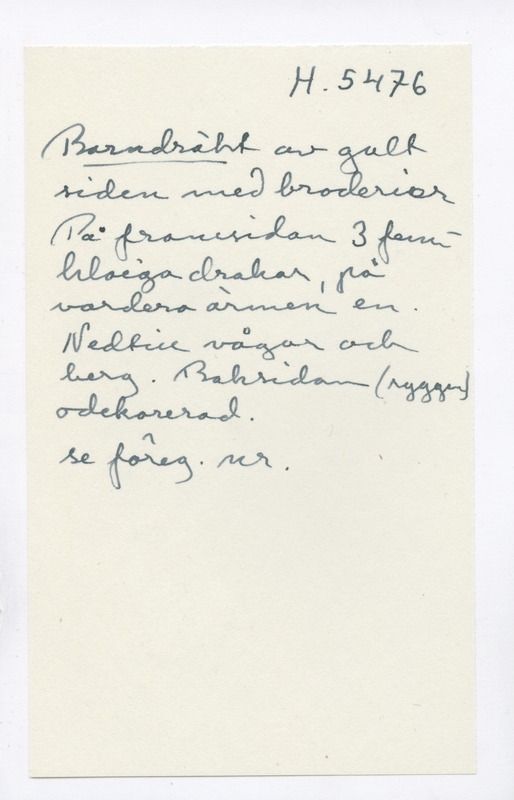 H. 5476
Barndräkt av gult
siden med broderier
På framsidan 3 fem-
kloiga drakar, på
vardera ärmen en.
Nedtill vågor och
berg. Baksidan (ryggen)
odekorerad.
se föreg. nr.